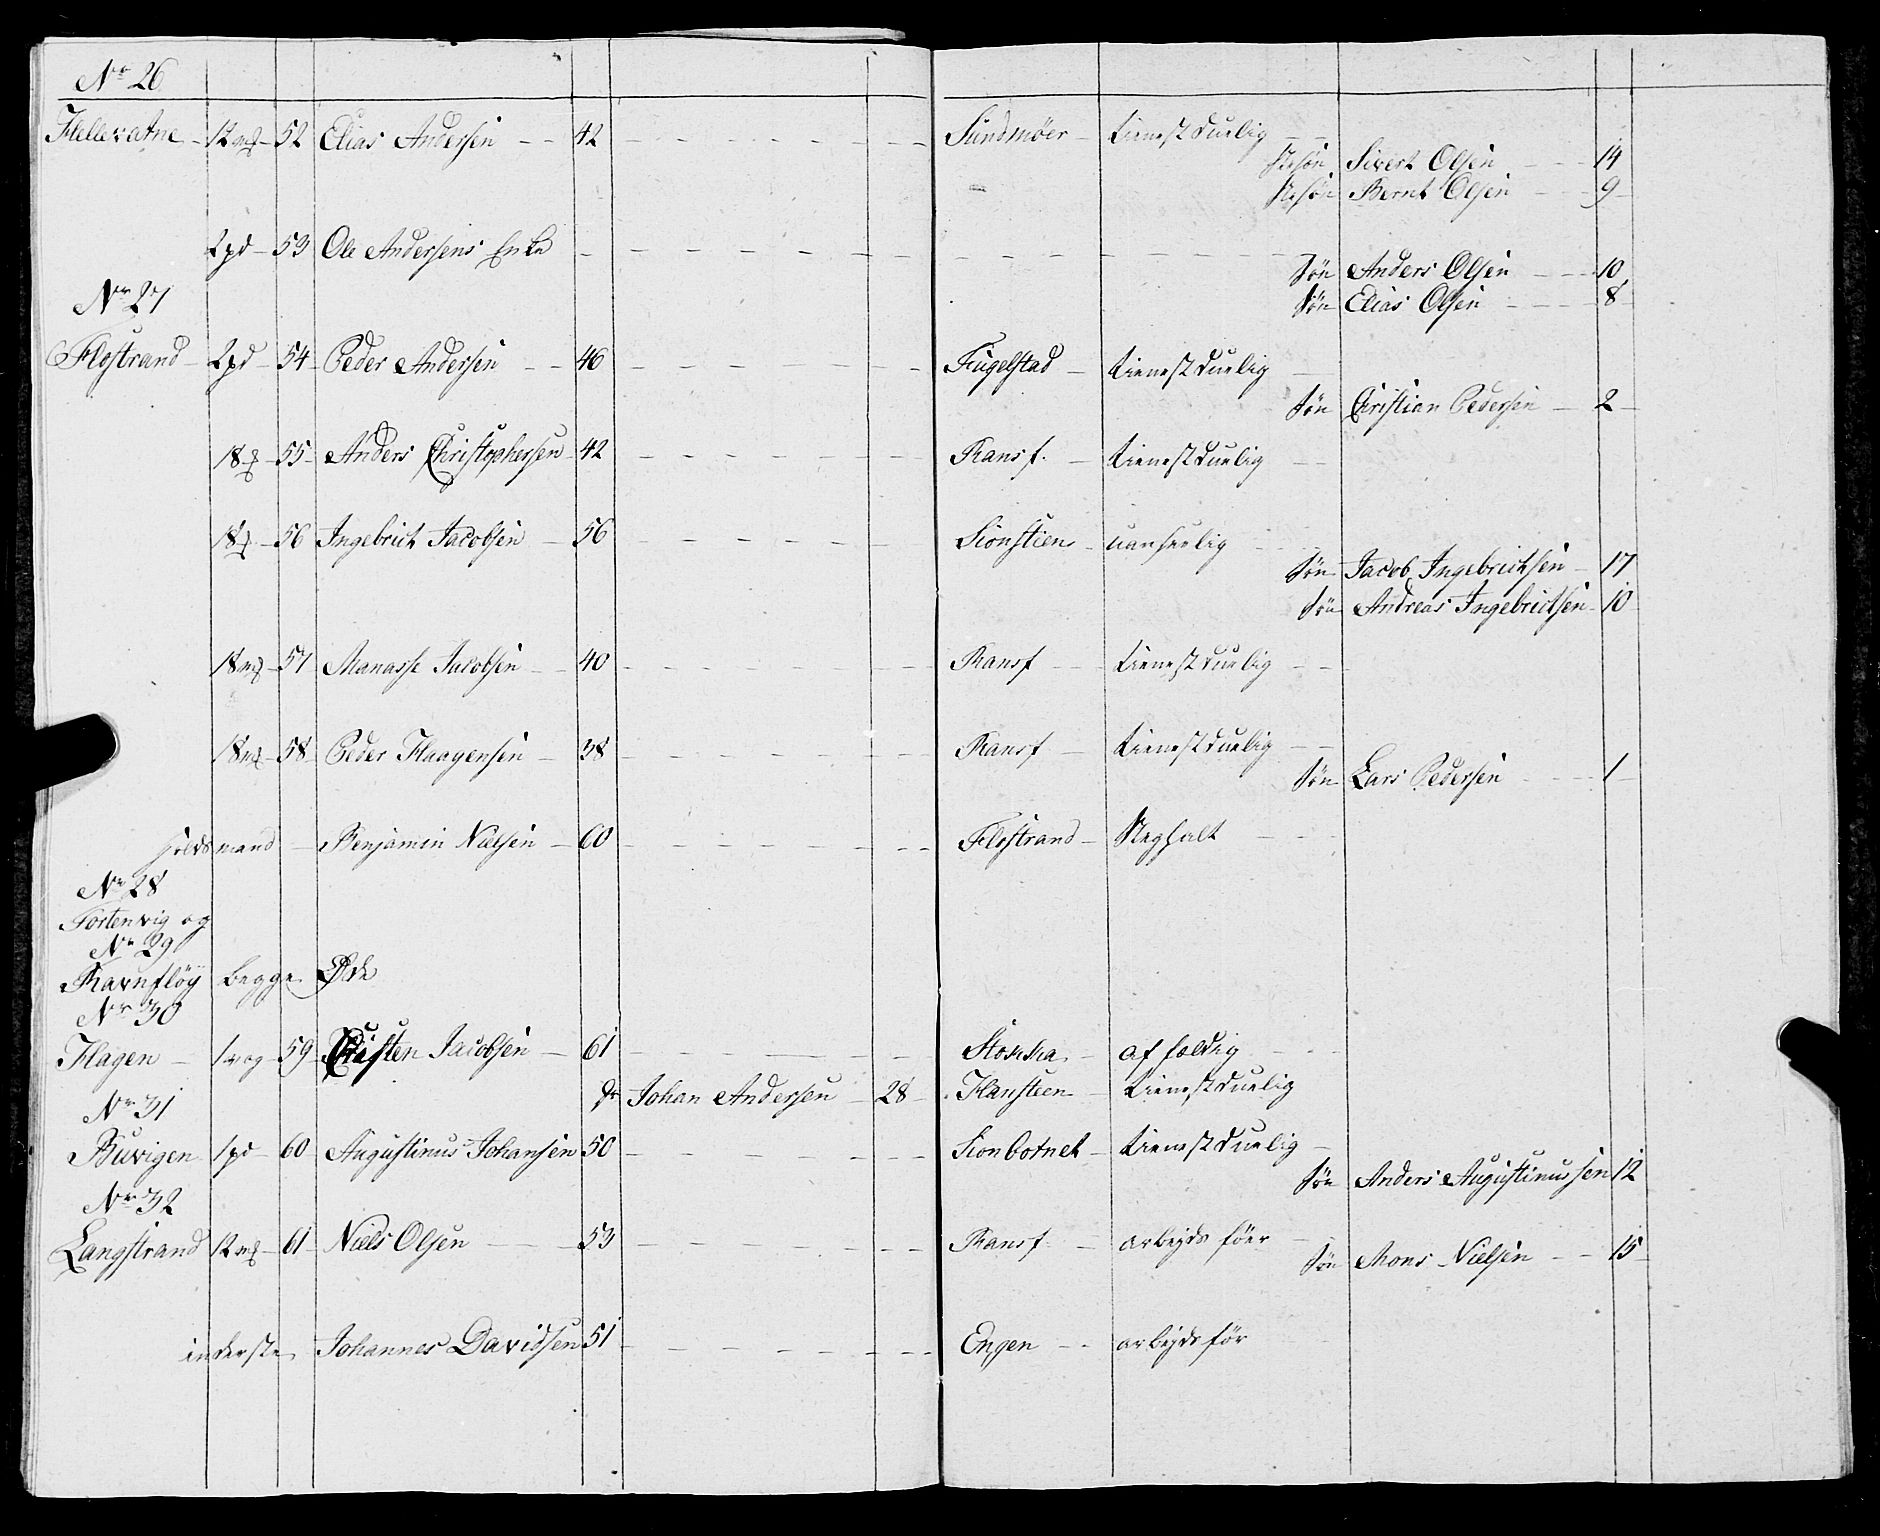 No 26
Hellevatne - 12 mk - 52 Elias Andersen - - 42 Sundmöer - tienestduelig
Stesön Sivert Olsen - - 14
Stesön Bernt Olsen - - 9
2 pd - 53 Ole Andersens Enke
Sön Anders Olsen - - 10
No 27
Sön Elias Olsen - - 8
Flostrand - 2 pd - 54 - Peder Andersen - - 46 Fugelstad - tienestduelig
Sön Christian Pedersen - 2
18 - 55 - Anders Christophersen - 42 Ransf. - tienestduelig
18 - 56 Ingebrict Jacobsen - 56 Sionstien - uanseelig
Sön Jacob Ingebrictsen - 17
Sön Andreas Ingebrictsen - 10
18 mk - 57 Manasse Jacobsen - 40 Ransf - tienestduelig
18 mk - 58 - Peder Haagensen - 38 Ransf - tienestduelig
Sön Lars Pedersen - - 1
huusmand - Benjamin Nielsen - 60 Flostrand - Steghalt
No 28
Tortenvig og
No 29
Ravnflöy begge Øde
No 30
Hagen - 1 vog - 59 - Christen Jacobsen - 61 Stokka - affældig
Johan Andersen - 28 - Hansteen - tienestduelig
No 31
Buvigen 1 pd - 60 Augustinus Johansen 50 Sionbotnet - tienestduelig
Sön Anders Augustinussen 12
No 32
Langstrand 12 mk - 61 - Niels Olsen - 53 Ransf - arbejds föer
Sön Mons Nielsen - - 15
inderste Johannes Davidsen 51 Engen - - arbejdsför